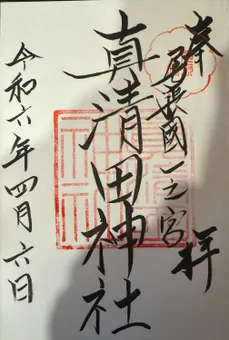 奉拝
尾張國一之宮
真清田神社
令和六年四月六日